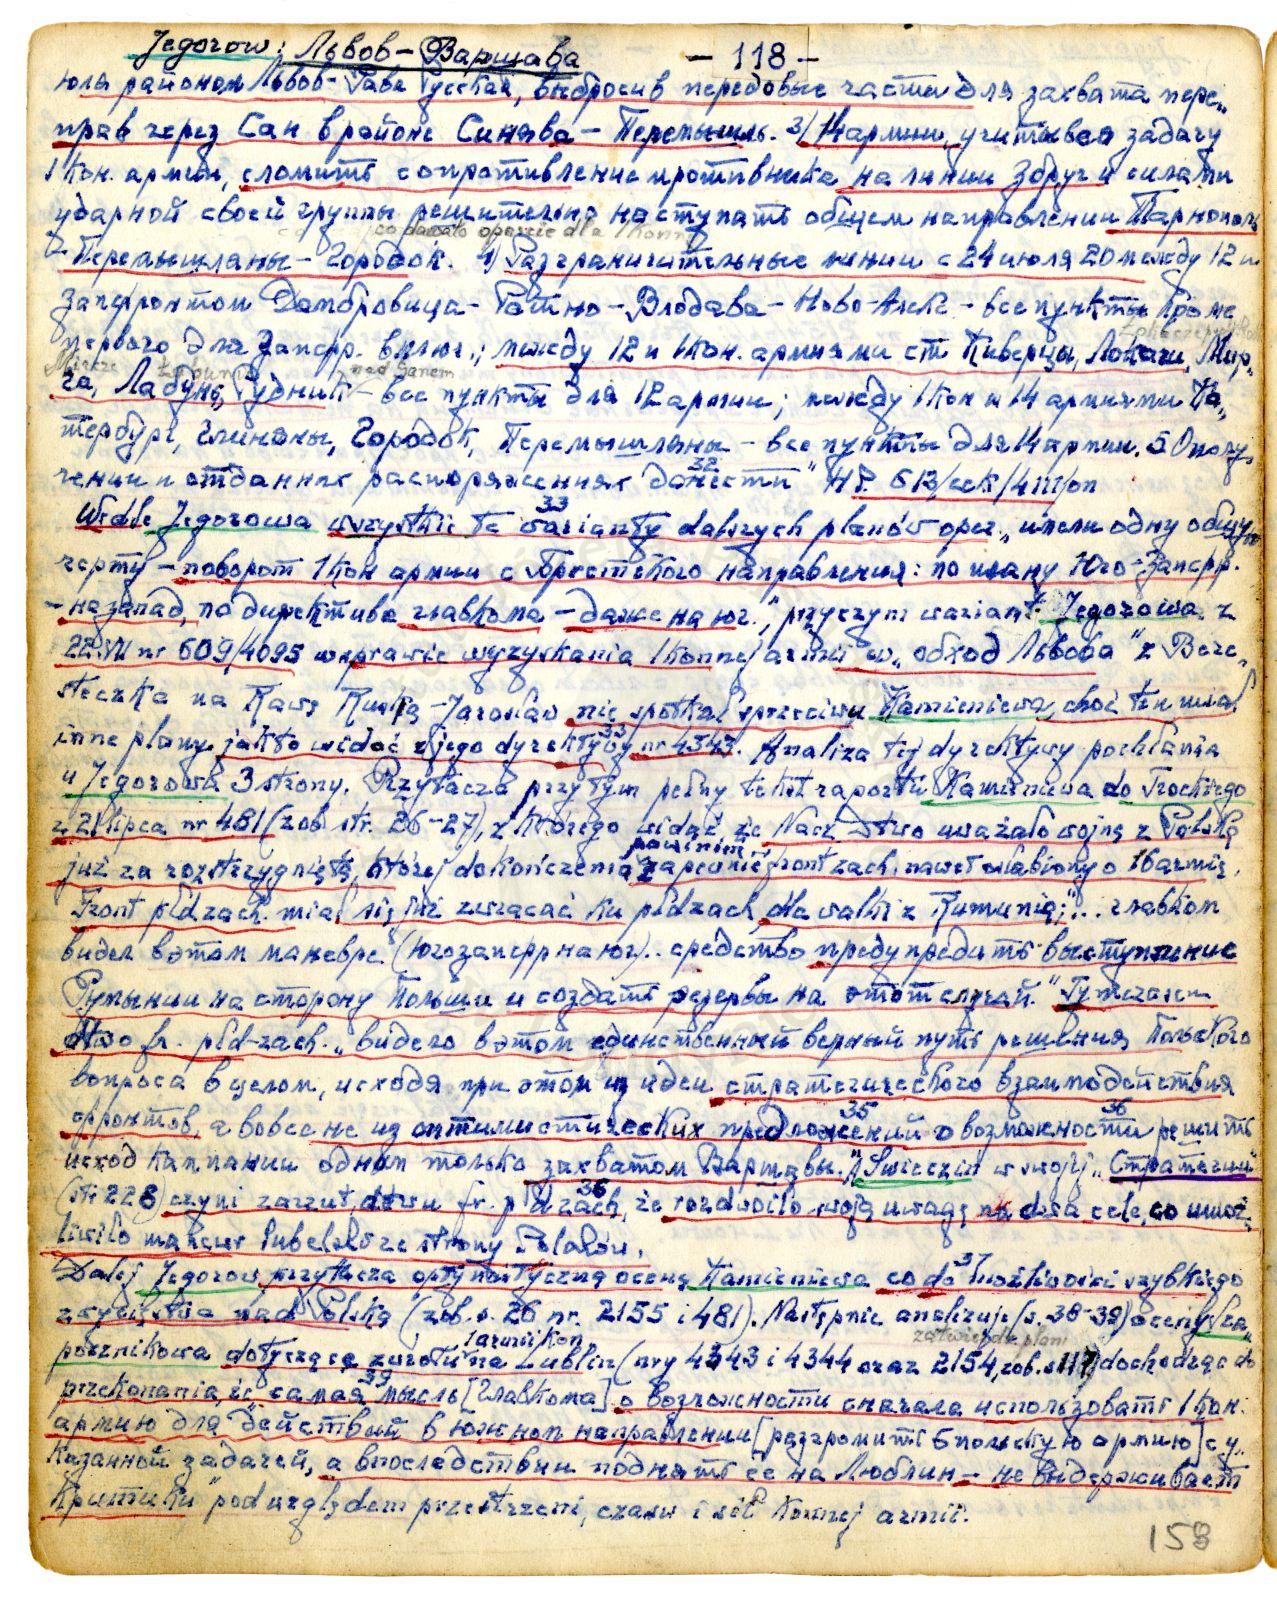 Jegorow: Львов – Варшава – 118 –
юля районом Львов – Рава Русская, выбросив передовые части для захвата пере„
прав через Сан в районе Синява – Перемышль. 3/ 14 армии, учитывая задачу
1 Кон. армии, сломить сопротивление противника на линии Збруч и силами
ударной своей группы решительно наступать общем направлении Тарнополь
co dawało oparcie dla 1 Konn
– Перемышляны – Городок. 4) Разграничительные линии с 24 июля 20 между 12 и
Запфронтом Домбровица – Ратно – Влодава – Ново-Алекс – все пункты кроме
первого для Запфр. включ.; между 12 и 1 Кон. армиями ст. Киверцы, Локачи, Мир„
Mircze Łabunie nad Sanem
ча, Лабуне, Рудник – все пункты для 12 армии; между 1 Кон и 14 армиями Ка„
тербург, Глиняны, Городок, Перемышляны – все пункты для 14 армии. 5 О полу„
чении и отданных распоряжениях донести" 32 НР. 613/сек/4111/оп
Wedle Jegorowa wszystkie te warianty dalszych planów oper. 33 „имели одну общую
черту – поворот 1 Кон армии с Брестского направления: по плану Юго-Запфр.
– на запад, по директиве главкома – даже на юг.", przyczym wariant Jegorowa z
22 VII nr 609/4095 w sprawie wyzyskania 1 Konnej armii w „обход Львова" z Bere„
steczka na Rawę Ruską – Jarosław nie spotkał sprzeciwu Kamieniewa, choć ten miał
inne plany, jak to widać z jego dyrektywy 33 nr 4343. Analiza tej dyrektywy pochłania
u Jegorowa 3 strony. Przytacza przytym pełny tekst raportu Kamieniewa do Trockiego
z 21 lipca nr 481 (zob str. 26–27), z którego widać, że Nacz Dztwo uważało wojnę z Polską
już za rozstrzygniętą, której dokończenie powinien zapewnić front zach. nawet osłabiony o 16 armię.
Front płd zach. miał się już zwracać ku płd zach. dla walki z Rumunią; „... главком
видел в этом маневре (югозапфр на юг).. средство предупредить выступление
Румынии на сторону Польши и создать резервы на этот случай." Tymczasem
dztwo fr. płd-zach. „видело в этом единственный верный путь решения Польского
вопроса в целом, исходя при этом из идеи стратегического взаимодействия
фронтов, а вовсе не из оптимистических 35 предложений о возможности 36 решить
исход кампании одним только захватом Варшавы." Swieczin w swojej „Стратегии"
(str 228) czyni zarzut dztwu fr. płd zach. 36, że rozdwoiło swoją uwagę na dwa cele, co umoż„
liwiło manewr lubelski ze strony Polaków.
Dalej Jegorow przytacza optymistyczną ocenę Kamieniewa co do 37 możliwości szybkiego
zwycięstwa nad Polską (zob. s. 26 nr. 2155 i 481). Następnie analizuje (s. 38-39) oceny Sza„
1 armii kon zatwierdz. plan
posznikowa dotyczące zwrotu na Lublin (nry 4343 i 4344 oraz 2154, zob. s 117) dochodząc do
przekonania, że „самая 39 мысль [Главкома] о возможности сначала использовать 1 Кон.
армию для действий в южном направлении [разгромить 6 польскую армию] с у„
казанной задачей, а впоследствии поднять ее на Люблин – не выдерживает
критики" pod względem przestrzeni, czasu i sił Konnej armii.
158